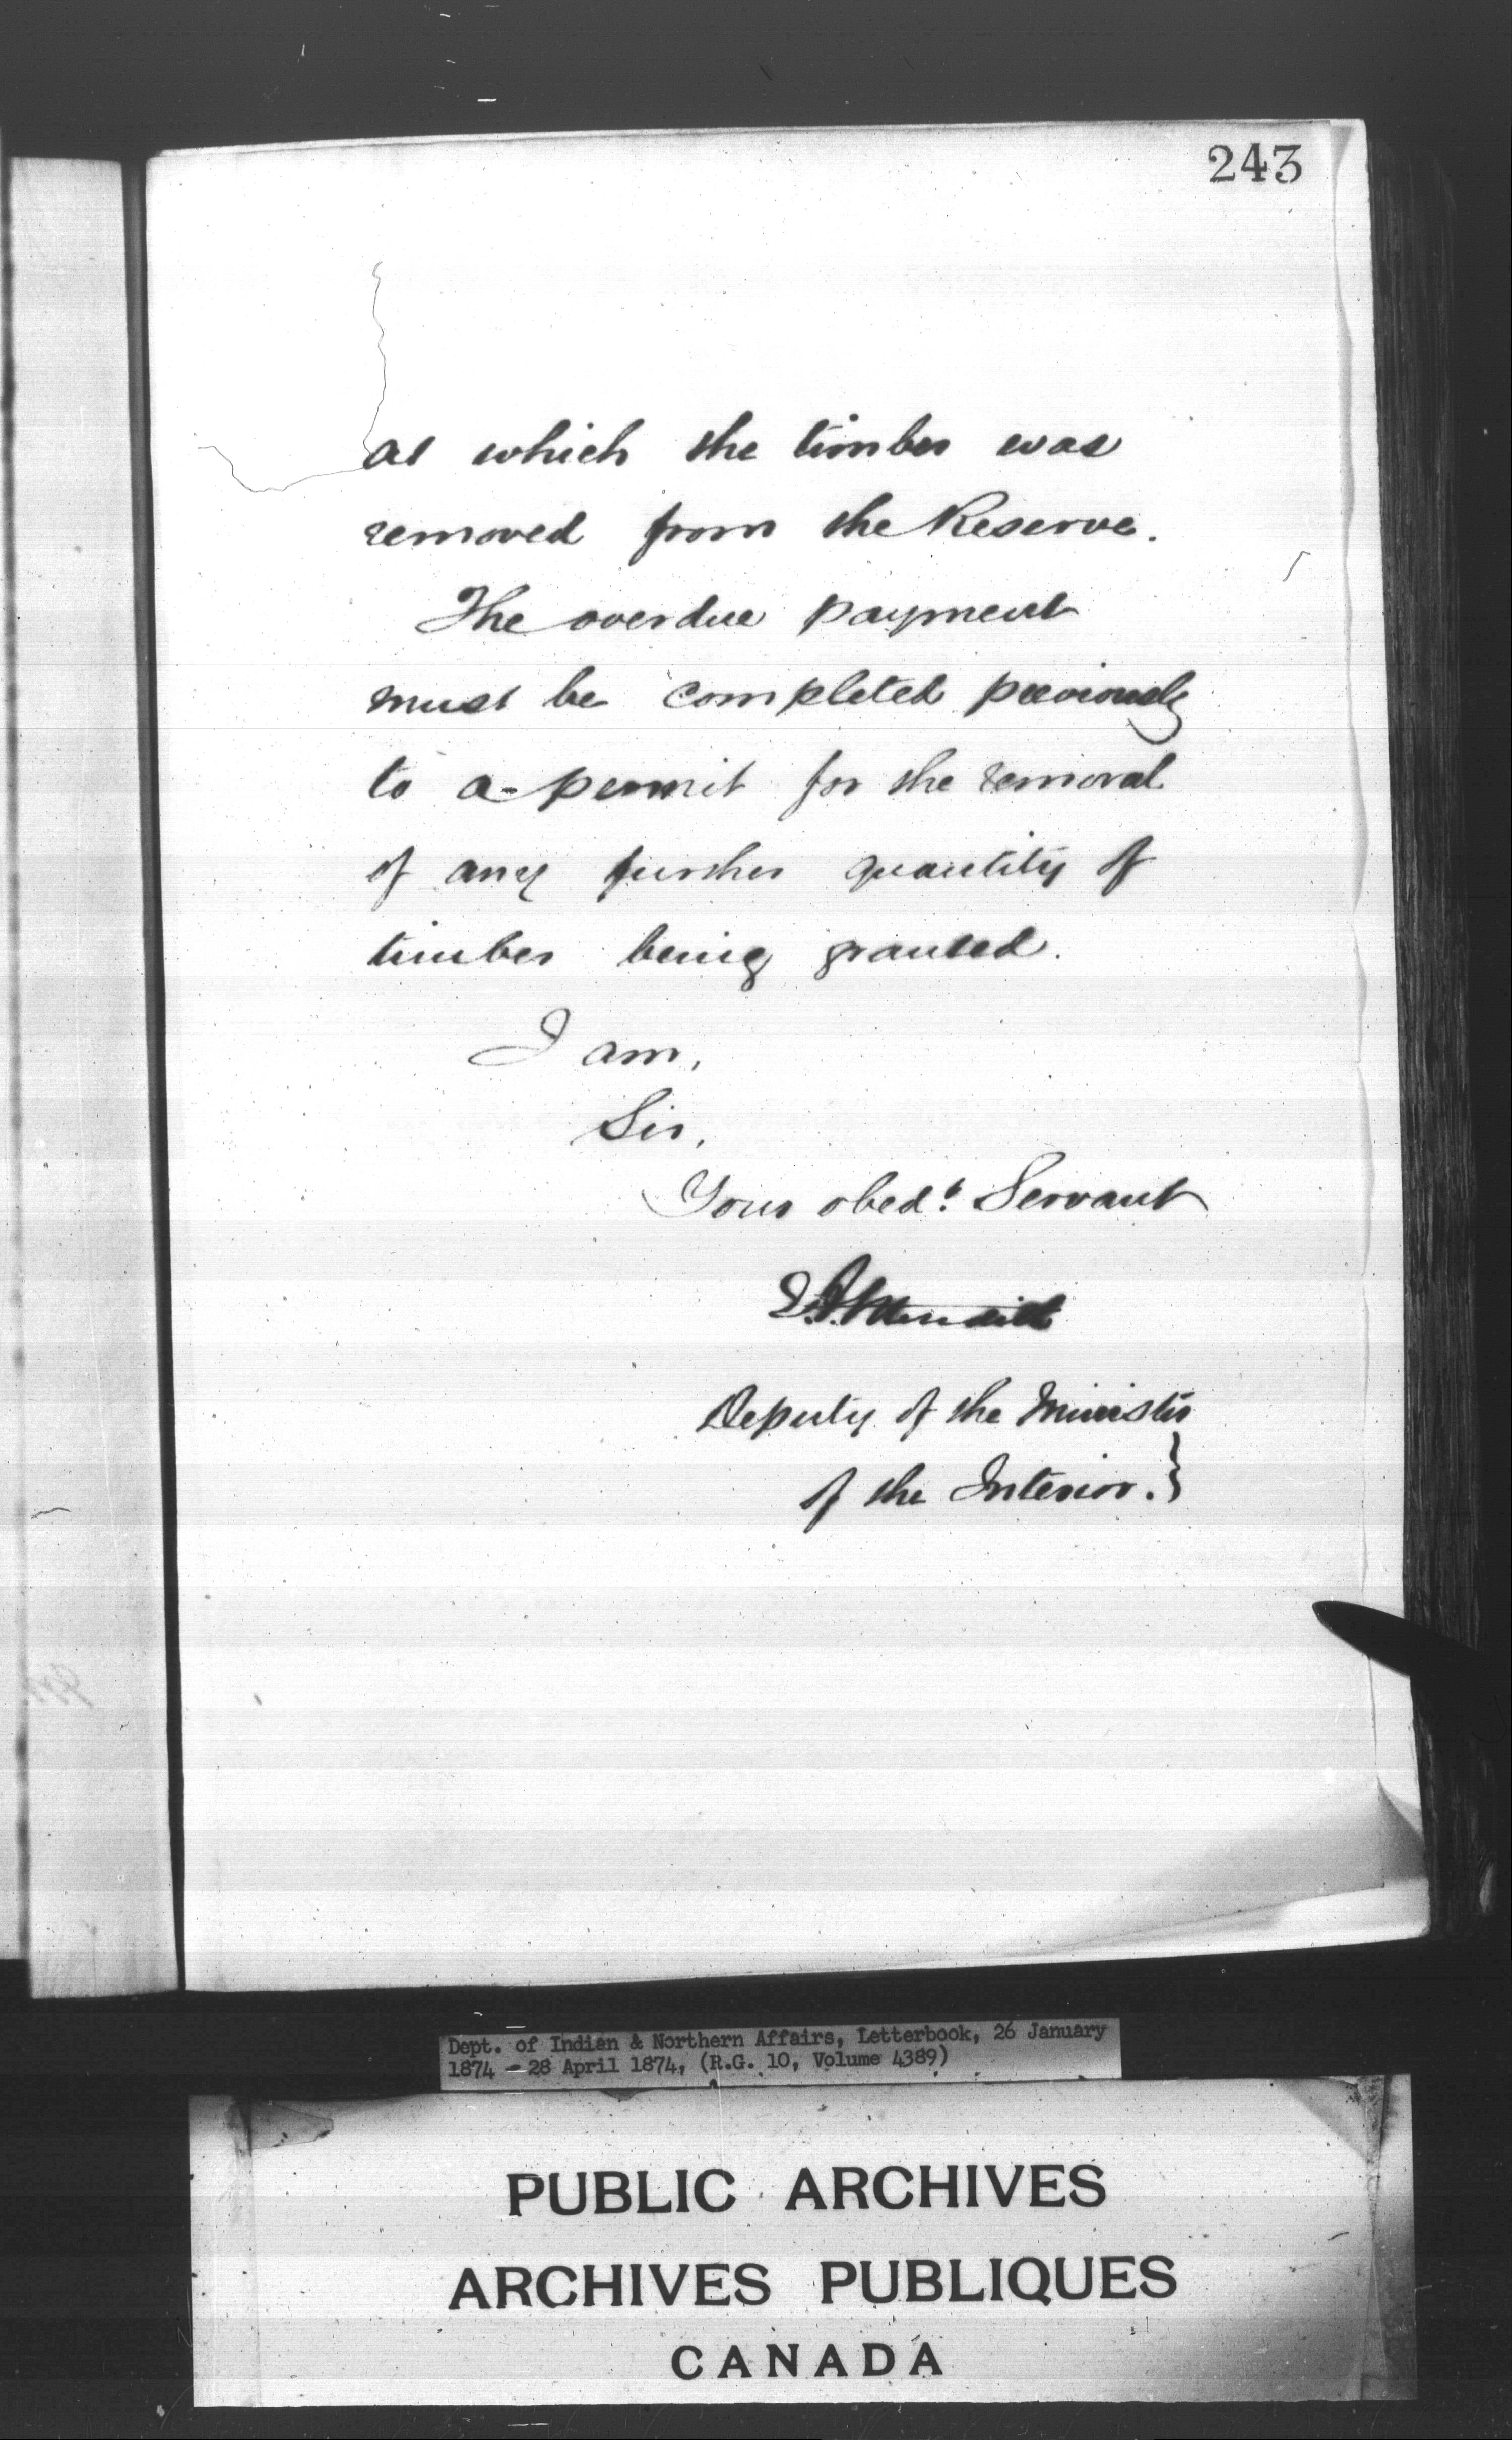 243
at which the timber was
removed from the Reserve.
The overdue payment
must be completed previously
to a permit for the removal
of any further quantity of
timber being granted.
I am,
Sir,
Your obedt. Servant
Deputy of the Minister
of the Interior. }
Dept. of Indian & Northern Affairs, Letterbook, 26 January
1874 - 28 April 1874, (R.G. 10, Volume 4389)
PUBLIC ARCHIVES
ARCHIVES PUBLIQUES
CANADA